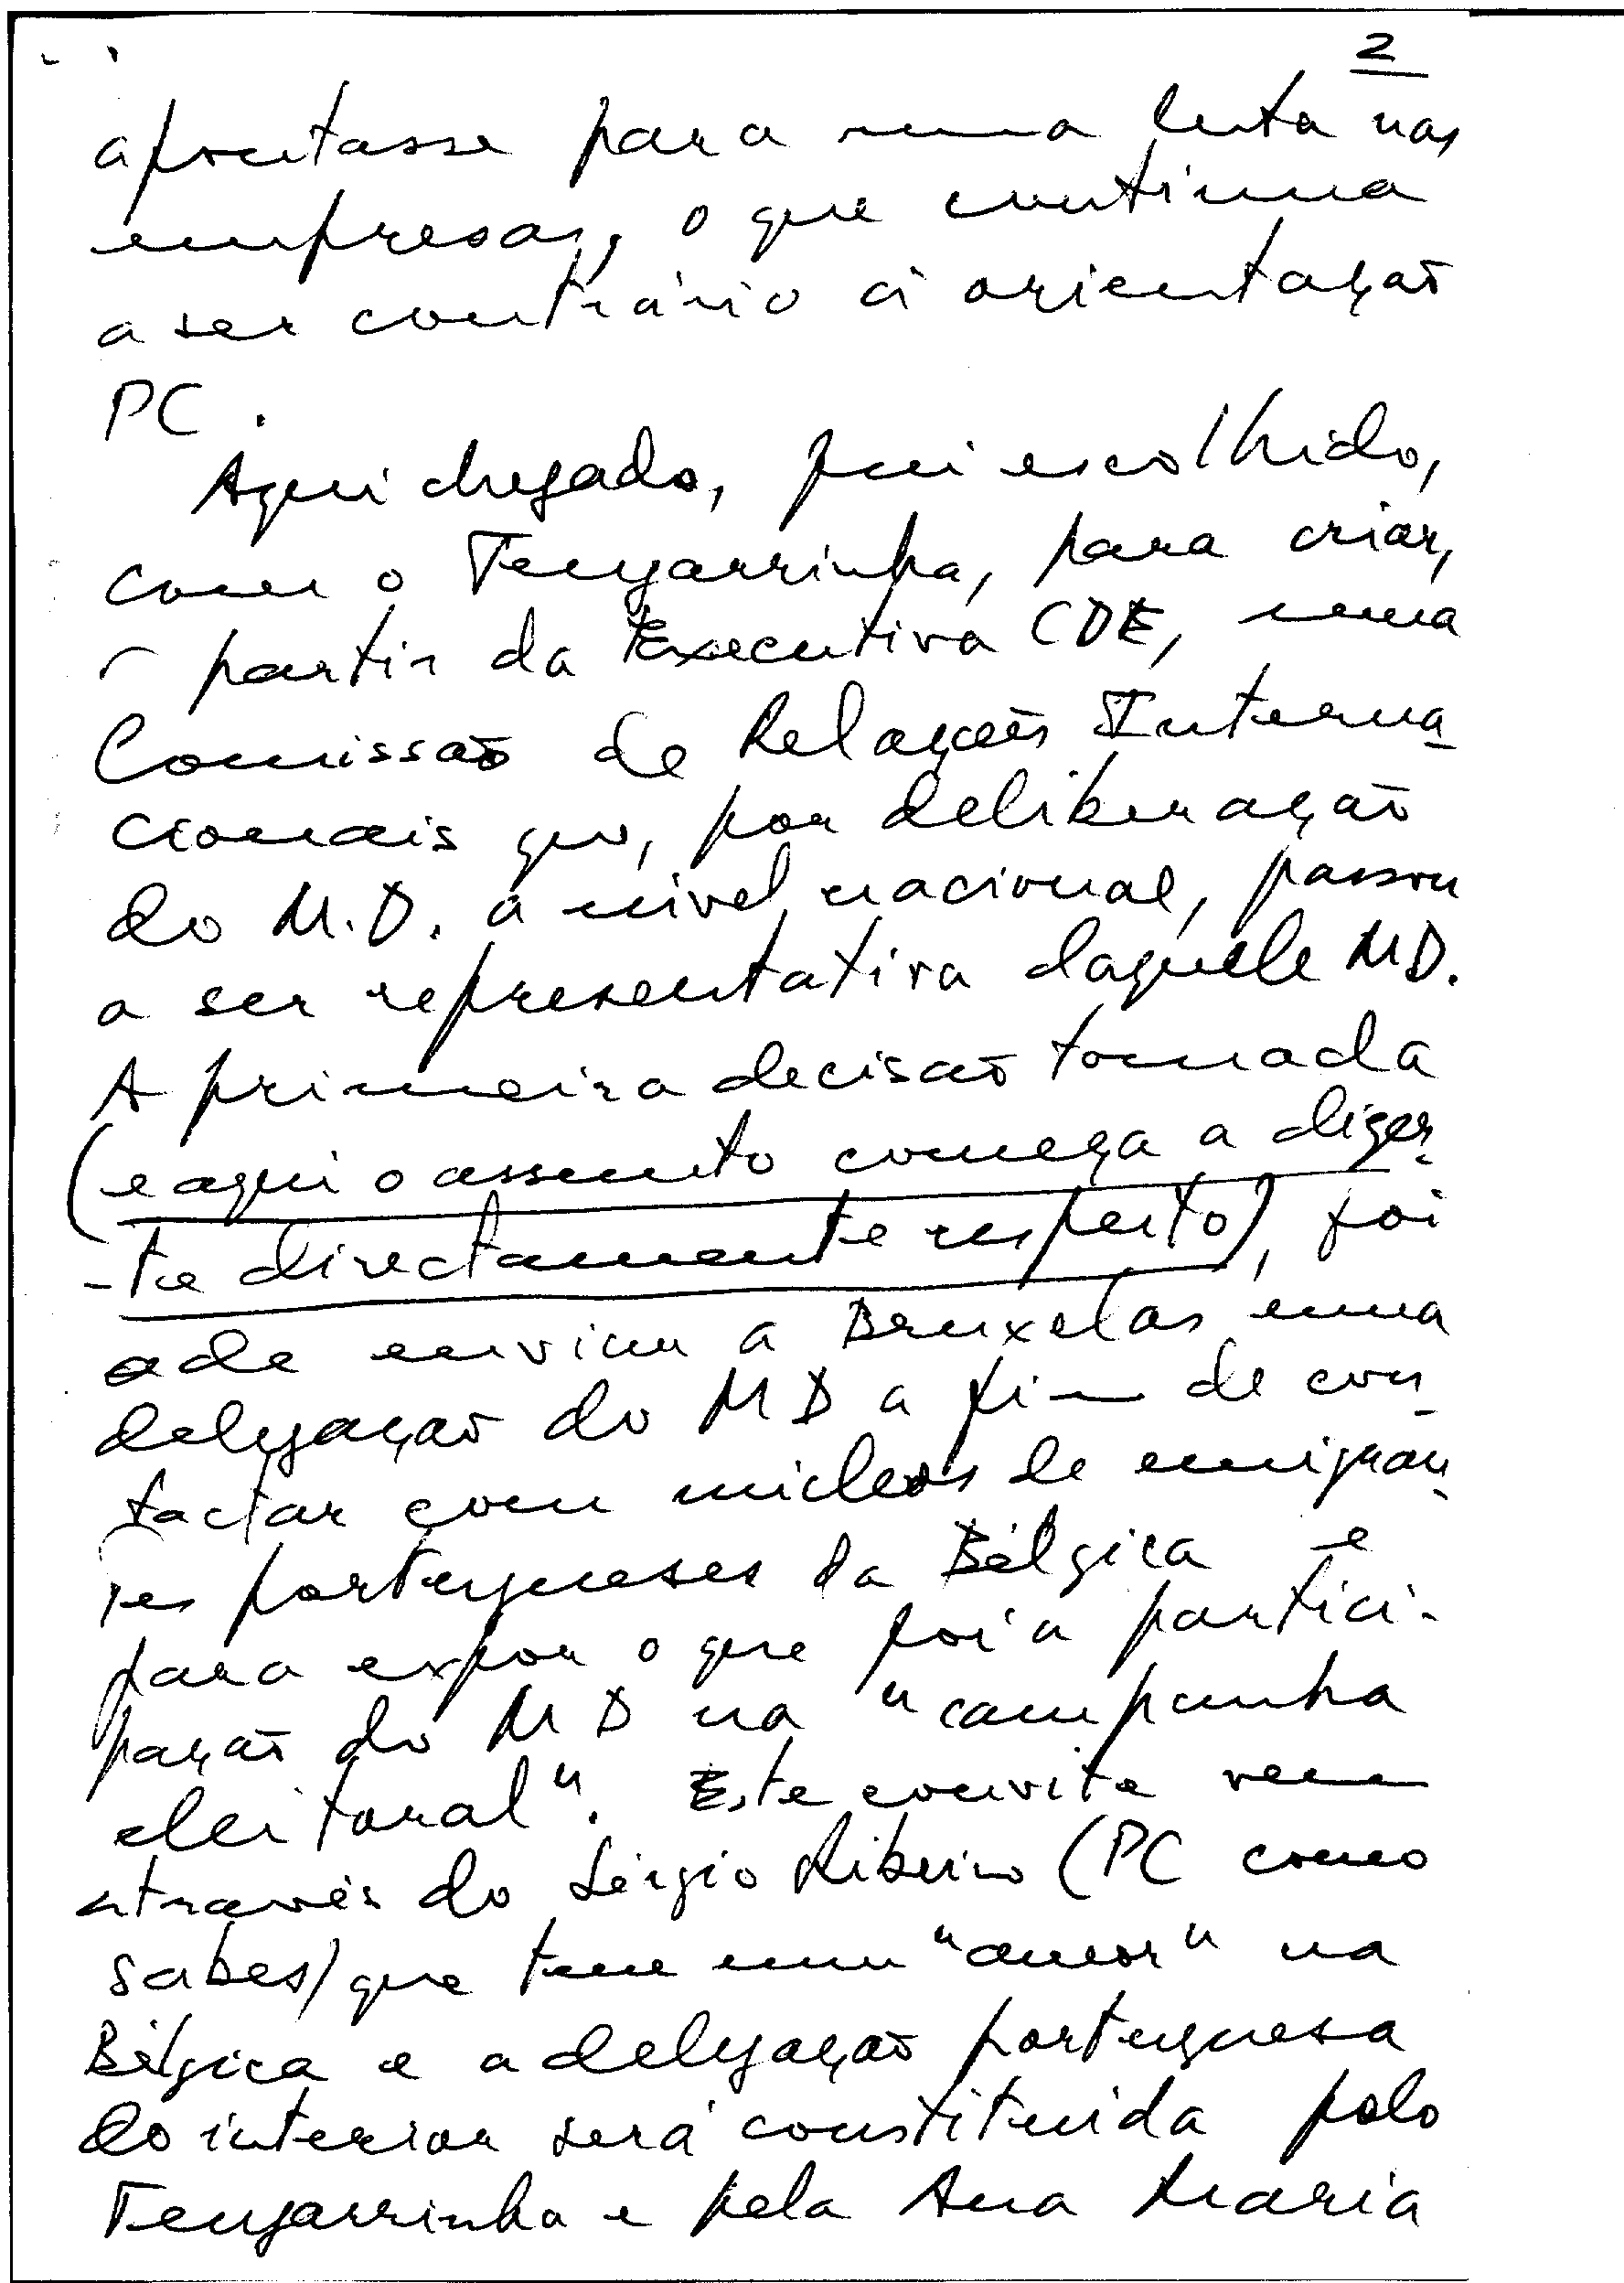 2
apontasse para uma luta nas
empresas, o que continua
a ser contrário à orientação
PC.
Aqui chegado, fui escolhido,
com o Tengarrinha, para criar,
a partir da Executiva CDE, uma
Comissão de Relações Interna-
cionais que, por deliberação
do M.D. a nível nacional, passou
a ser representativa daquele MD.
A primeira decisão tomada
(e aqui o assunto começa a dizer-
-te directamente respeito), foi
a de enviar a Bruxelas uma
delegação do MD a fim de con-
tactar com núcleos de emigran-
tes portugueses da Bélgica e
para expor o que foi a partici-
pação do MD na "campanha
eleitoral". Este convite vem
através do Sérgio Ribeiro (PC como
sabes) que tem um "amor" na
Bélgica e a delegação portuguesa
do interior será constituída pelo
Tengarrinha e pela Ana Maria